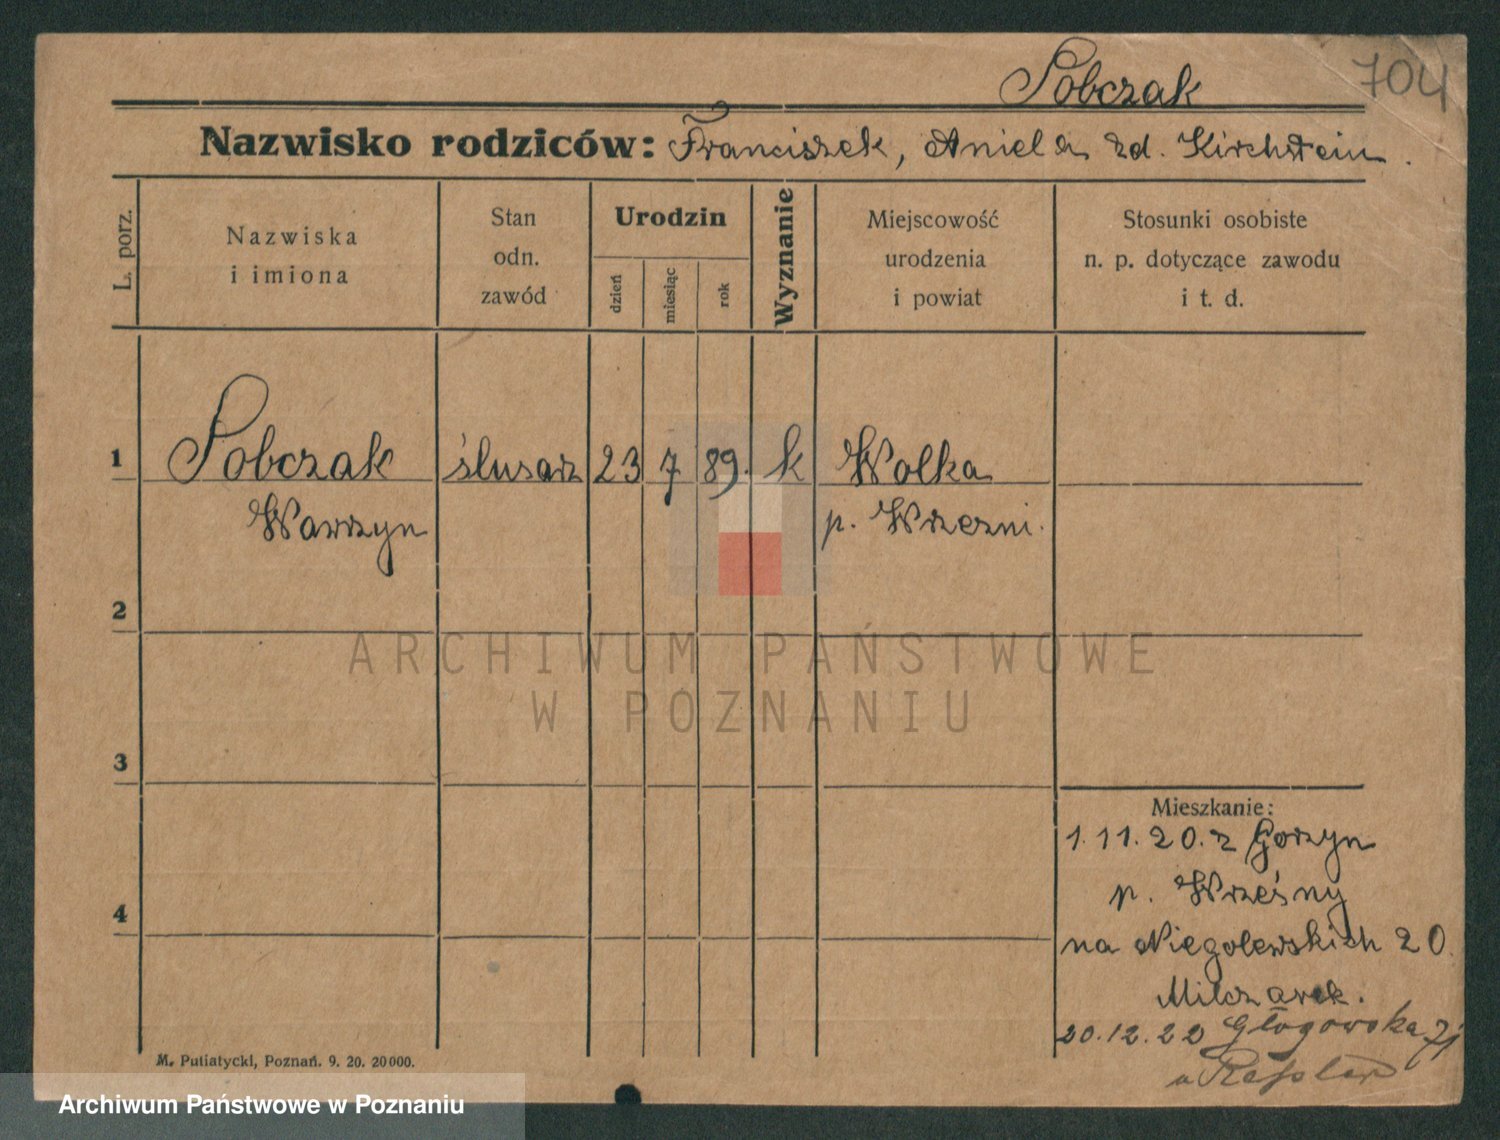 Sobczak 704
Nazwisko rodziców: Franciszek, Aniela zd. Kirchstein.
L. porz.
Nazwiska i imiona
Stan odn. zawód
Urodzin
dzień
miesiąc
rok
Wyznanie
Miejscowość urodzenia i powiat
Stosunki osobiste n. p. dotyczące zawodu i t. d.
1 Sobczak ślusarz 23 7 89. k Wolka
Wawrzyn p. Wrzezni.
2
ARCHIWUM PAŃSTWOWE
W POZNANIU
3
Mieszkanie:
1.11.20. z Gorzyn
p. Wrześny
4
na Niegolewskich 20.
Milczarek.
20.12.22 Głogowska 71
u
M. Putiatycki, Poznań. 9. 20. 20000.
Archiwum Państwowe w Poznaniu